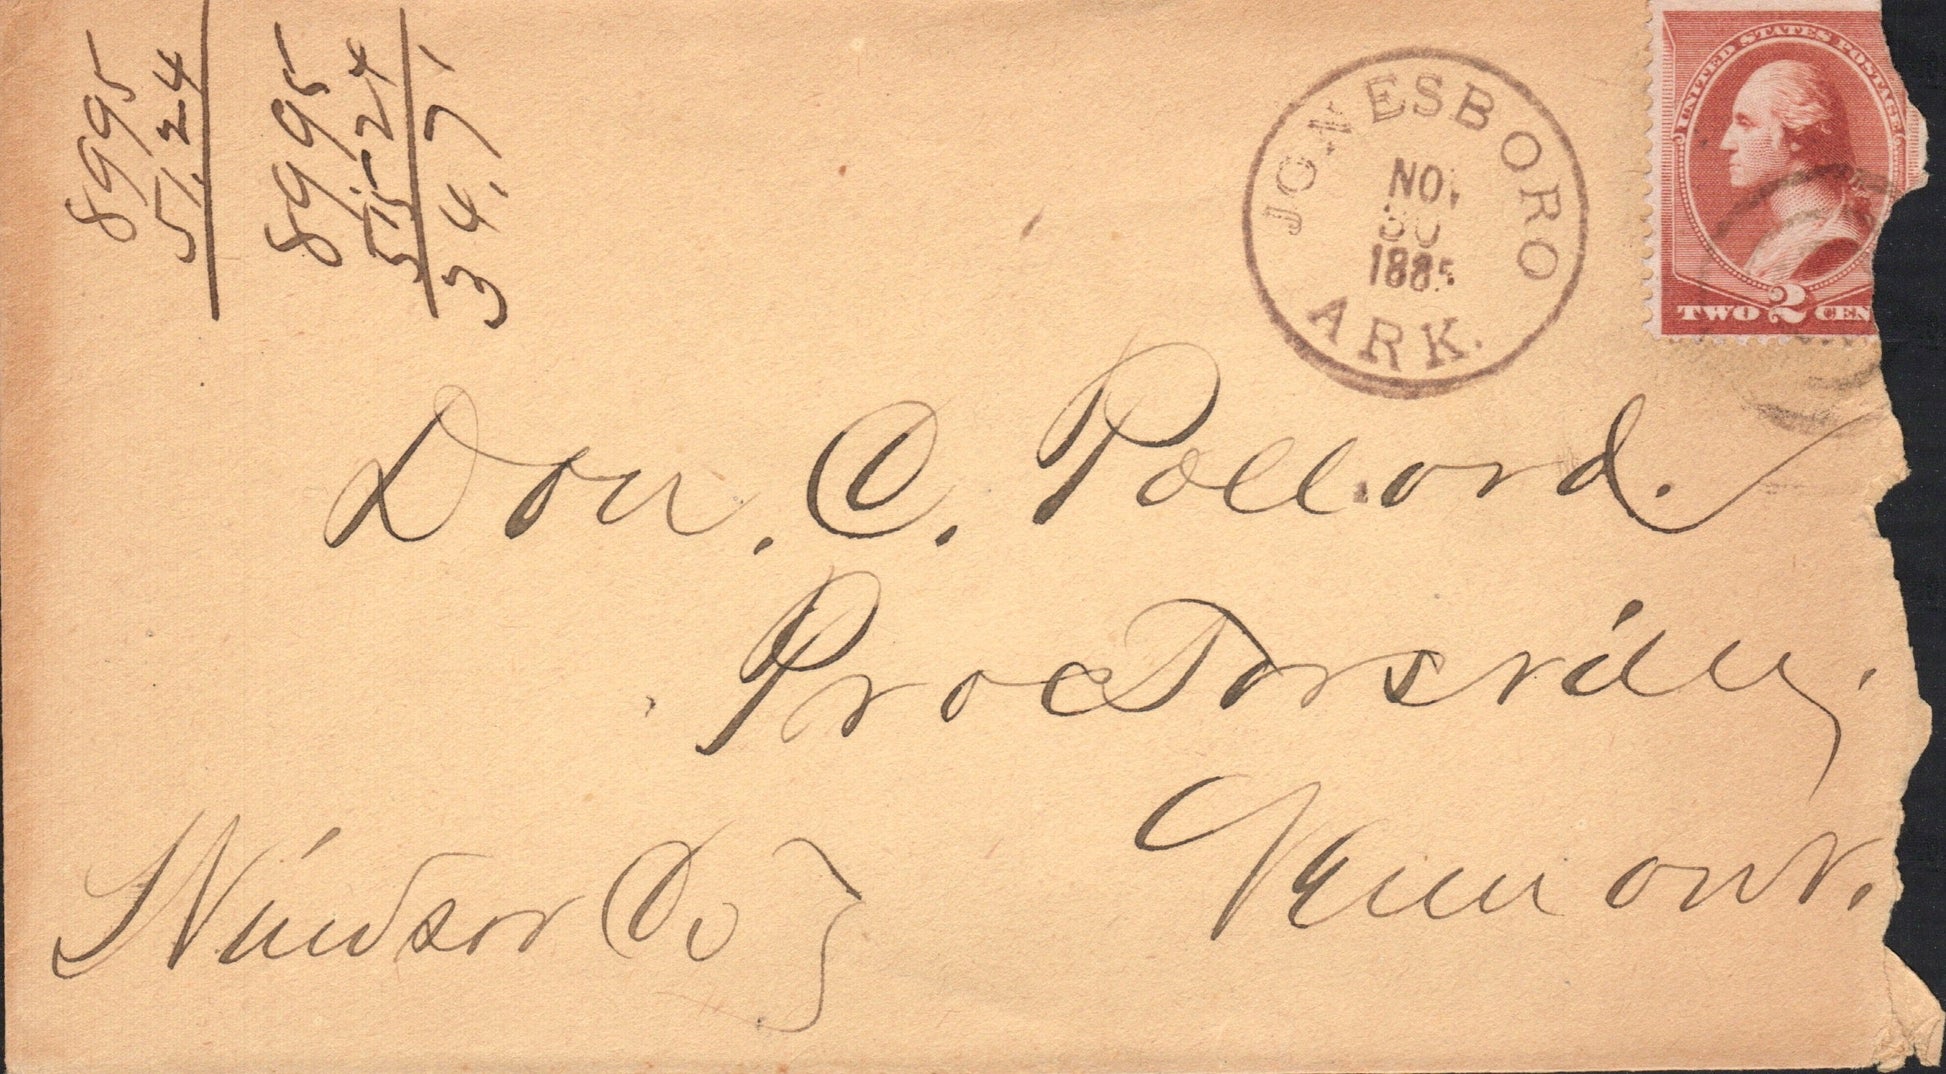 8995
51.24
8995
5524
34.71
JONESBORO
NOV
30
1885
ARK.
UNITED STATES POSTAGE
TWO 2 CEN
Don. C. Pollard.
Proctorsville.
Windsor Co
Vermont.